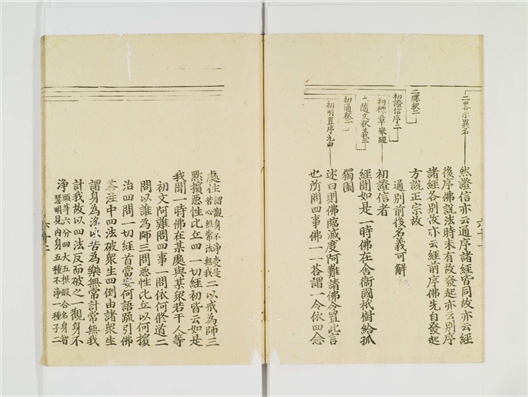 二略示異名
然證信亦云通序諸經皆同故亦云經
後序佛說法時未有故發起亦云別序
諸經各別故亦云經前序佛先自發起
方說正宗故
二釋
通別前後名義可解
初證信序二
初標章舉經
初證信者
二隨文釋義三
經聞如是一時佛在舍衛國祇樹給孤
獨園
初通釋二
初明置序之由
述曰則佛臨滅度阿難請佛令置此言
也謂問四事佛一一答謂一令依四念
處住謂觀身不淨受是苦心無常法無我二以戒為師三
默擯惡性比丘四一切經初皆云如是
我聞一時佛在某處與某眾若干人等
初文阿難問四事一問依何修道二
問以誰為師三問惡性比丘以何擯
治四問一切經首當安何語蹤引佛
答注中四法破眾生四倒由諸眾生
謂身為淨以苦為樂無常計常無我
計我故以四法反而破之一觀身不
淨